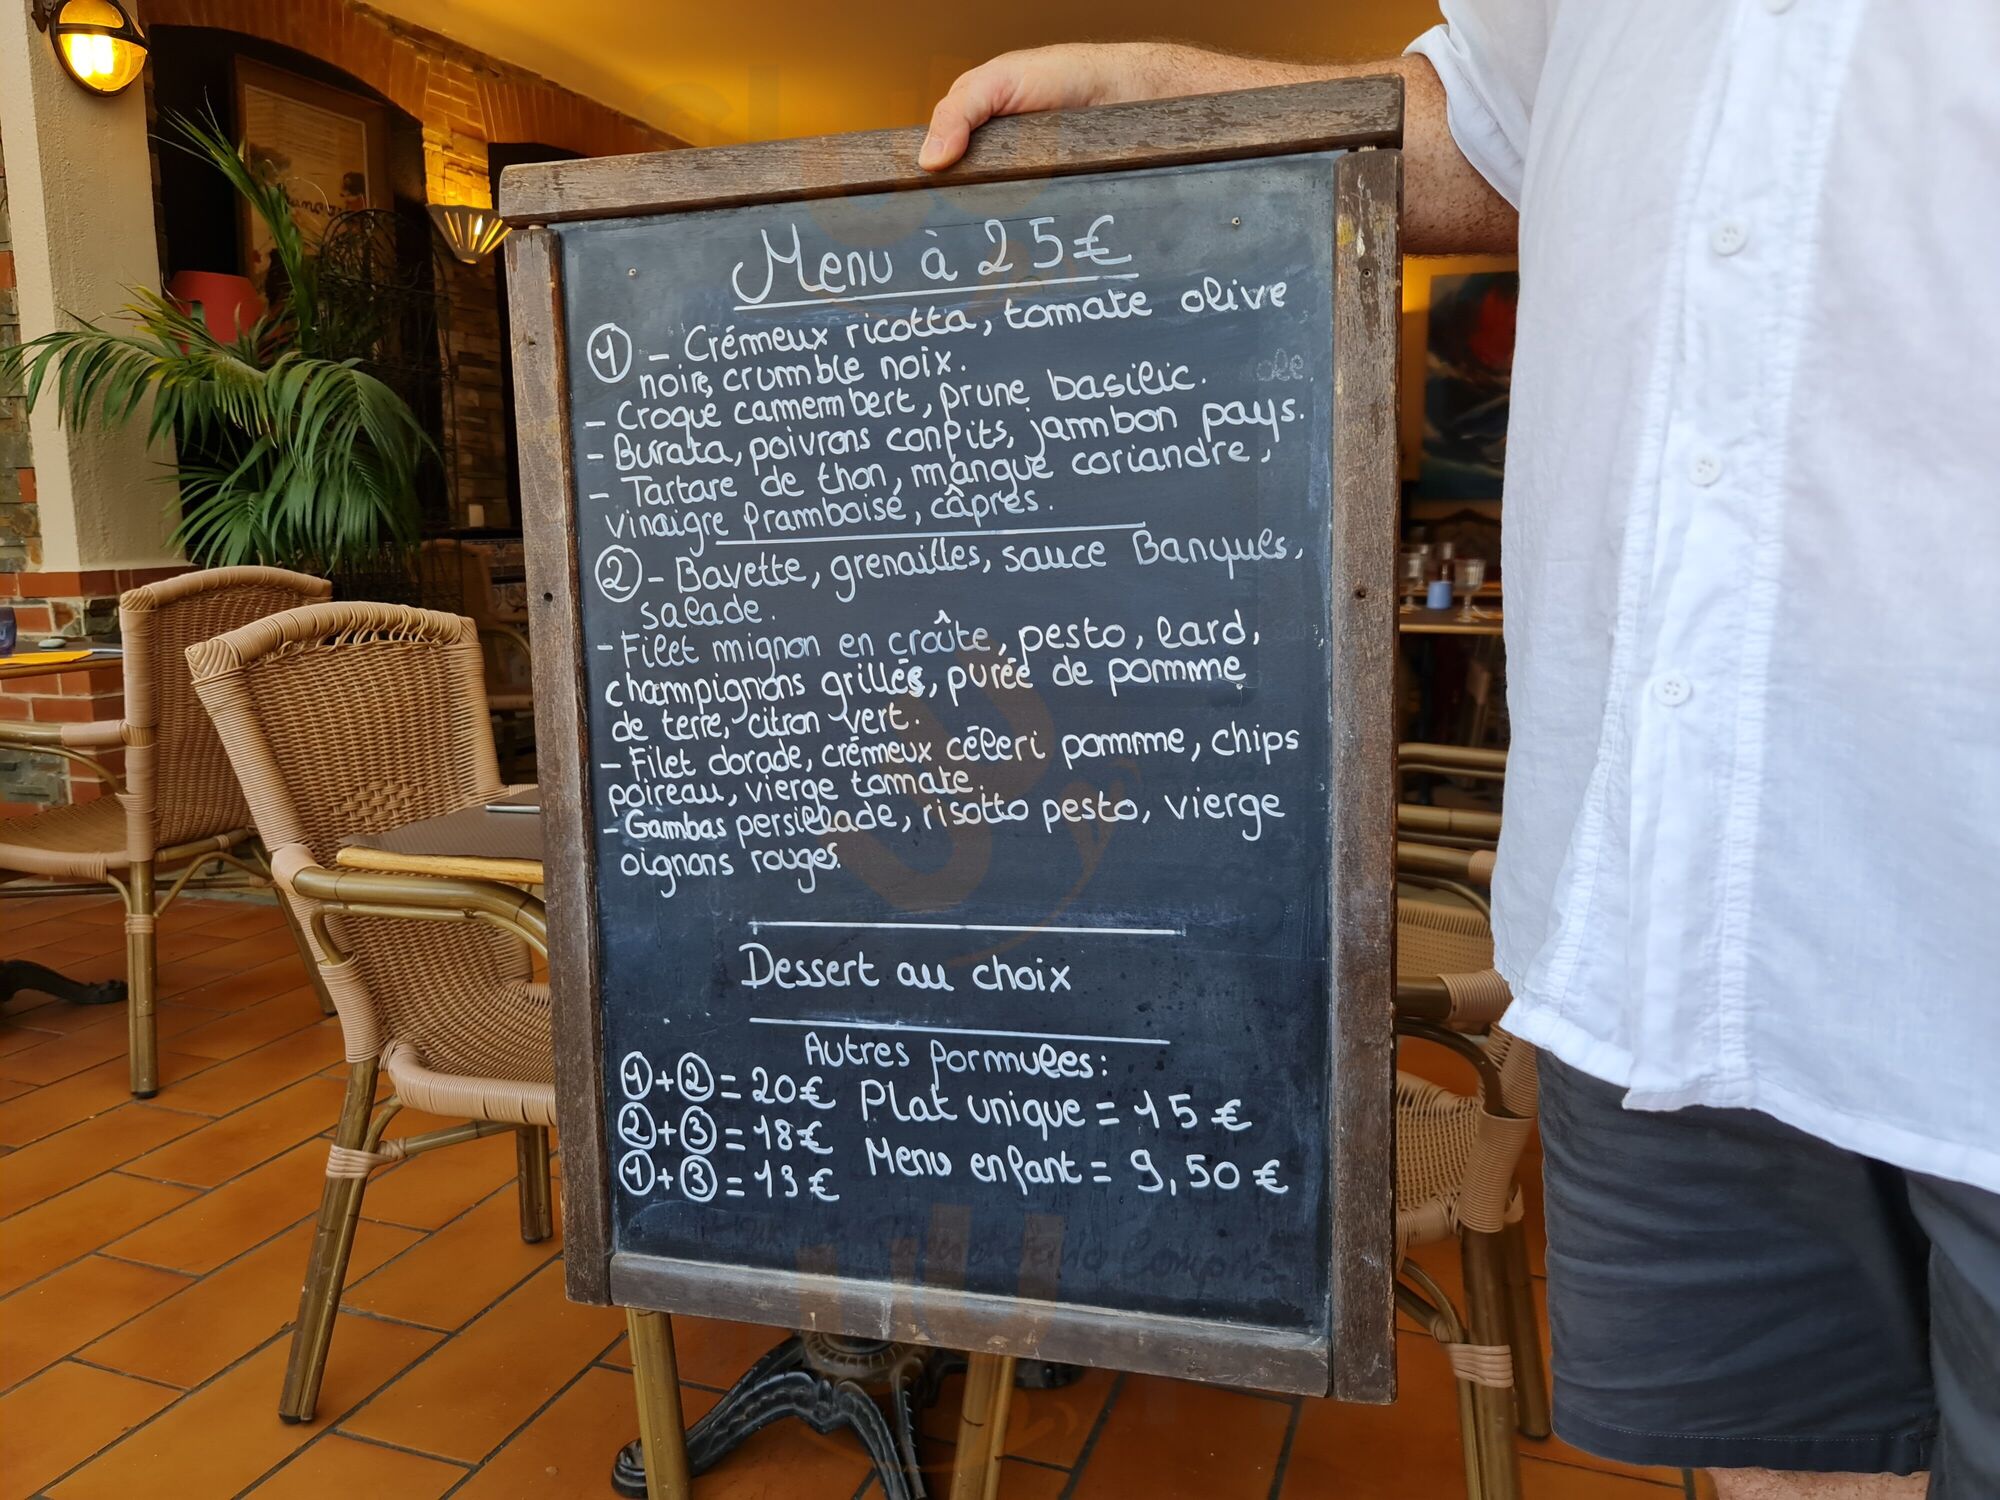 Menu à 25€
① - Crémeux ricotta, tomate olive
noire, crumble noix.
- Croque camembert, prune basilic.
- Burrata, poivrons confits, jambon pays.
- Tartare de thon, mangue coriandre,
vinaigre framboise, câpres.
② - Bavette, grenailles, sauce Banyuls,
salade.
- Filet mignon en croûte, pesto, lard,
champignons grillés, purée de pomme
de terre, citron vert.
- Filet dorade, crémeux céleri pomme, chips
poireau, vierge tomate.
- Gambas persillade, risotto pesto, vierge
oignons rouges.
Dessert au choix
Autres formules:
①+②=20€ Plat unique = 15€
②+③=18€
①+③=13€ Menu enfant = 9,50€